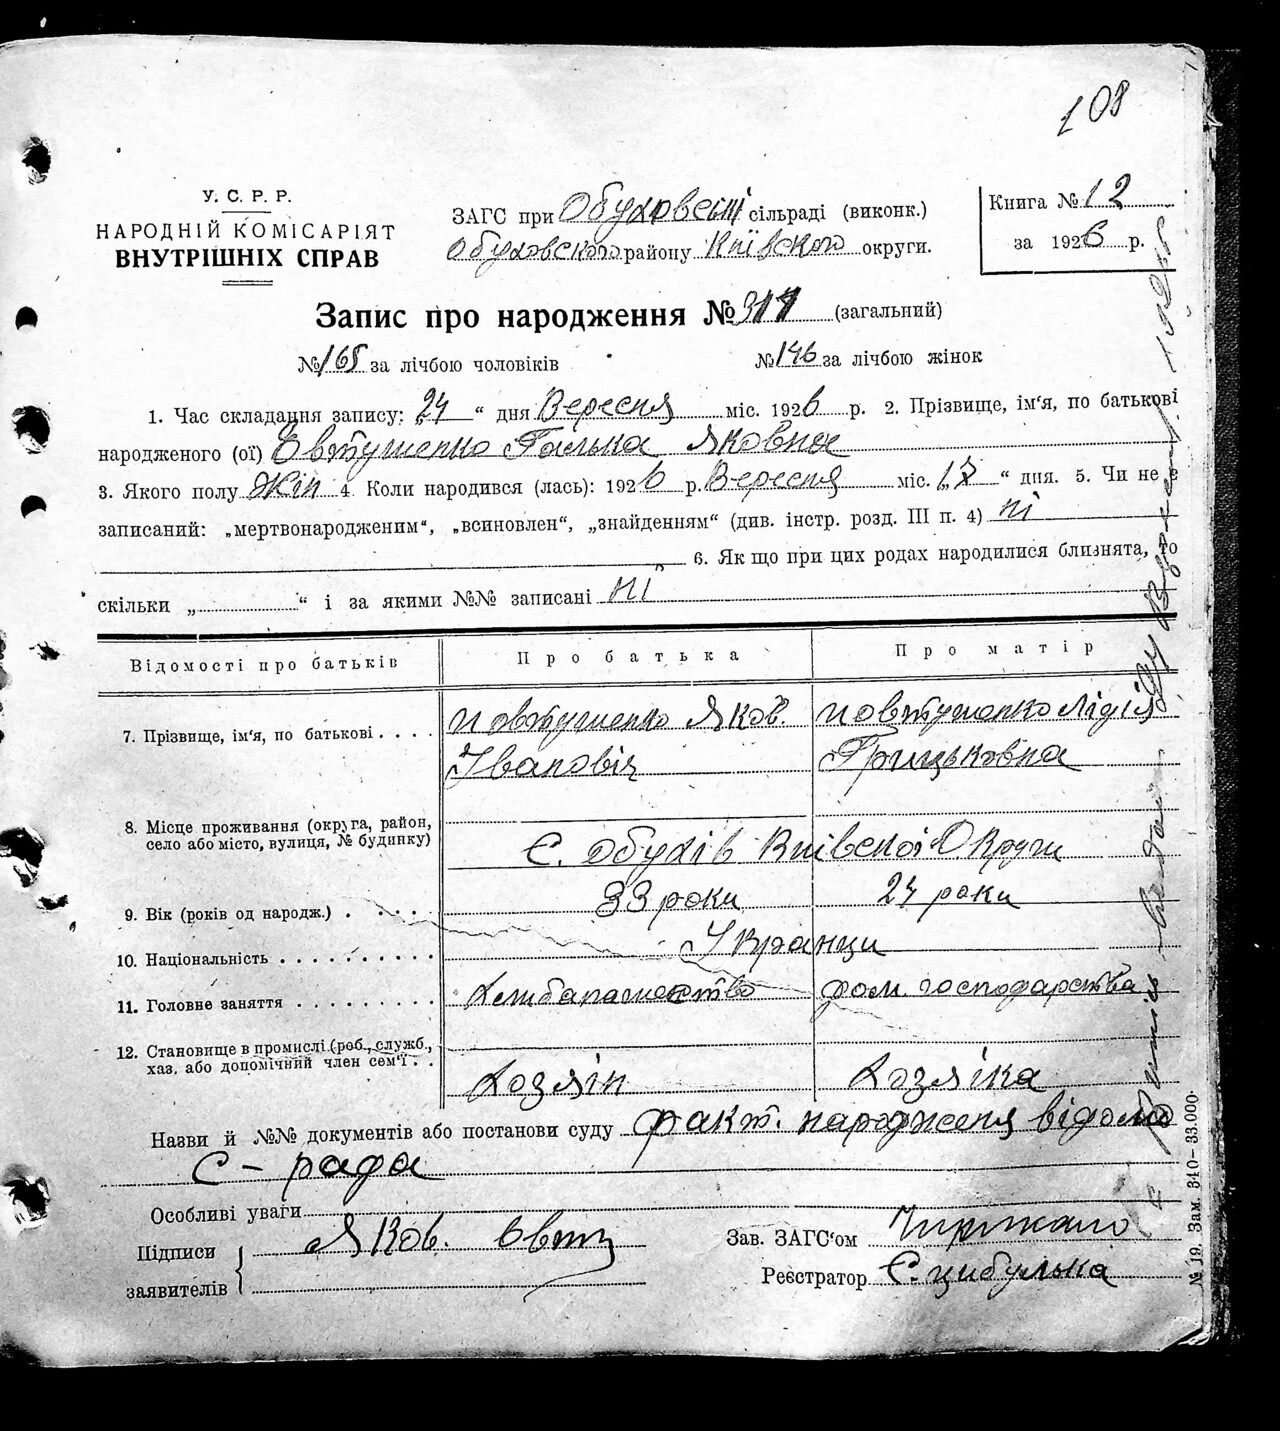 108
У. С. Р. Р.
НАРОДНІЙ КОМІСАРІЯТ
ВНУТРІШНІХ СПРАВ
ЗАГС при Обуховські сільраді (виконк.)
Обуховского району Київского округи.
Книга № 12
за 1926 р.
Запис про народження № 311 (загальний)
№ 165 за лічбою чоловіків № 146 за лічбою жінок
1. Час складання запису: „24“ дня Вересня міс. 1926 р. 2. Прізвище, ім‘я, по батькові
народженого (ої) Євтушенко Галька Яковна
3. Якого полу жін 4. Коли народився (лась): 1926 р. Вересня міс. „17“ дня. 5. Чи не є
записаний: „мертвонародженим“, „всиновлен“, „знайденням“ (див. інстр. розд. III п. 4) ні
6. Як що при цих родах народилися близнята, то
скільки „ “ і за якими №№ записані ні
Відомості про батьків Про батька Про матір
7. Прізвище, ім‘я, по батькові . . . . Иовтушенко Яков. Иовтушенко Лідія
Іванович Грицьковна
8. Місце проживання (округа, район,
село або місто, вулиця, № будинку)
С. Обухів Київскої Округи
9. Вік (років од народж.) . . . . . 33 роки 24 роки
10. Національність . . . . . . . . . . Українци
11. Головне заняття . . . . . . . . . Хлибапашество дом. господарства
12. Становище в промислі (роб., служб.,
хаз. або допомічний член сем‘ї . .
Хозяін Хозяіка
Назви й №№ документів або постанови суду факт. народженя відомо
С-рада
Особливі уваги
Підписи
заявителів
Яков. Овт
Зав. ЗАГС‘ом
Реєстратор Є. Цибулька
№ 19. Зам. 340–33.000